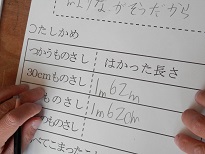 けなかそうだから
○たしかめ
つかうものさし はかった長さ
30cmものさし 1m62m
ものさし 1m620m
のものさし
べてこまったこ